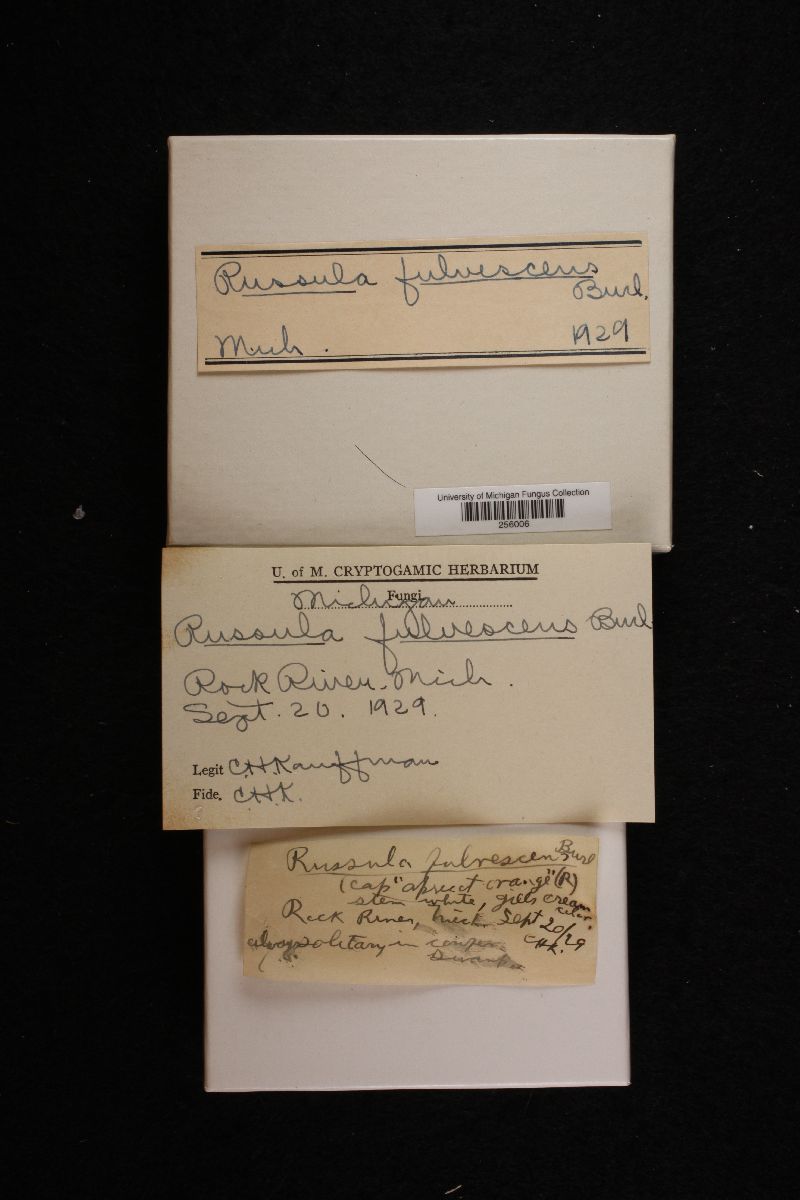 Russula fulvescens
Burl.
Mich. 1929
University of Michigan Fungus Collection
256006
U. of M. CRYPTOGAMIC HERBARIUM
Fungi
Michigan
Russula fulvescens Burl
Rock River. Mich.
Sept. 20. 1929.
Legit C.H.Kauffman
Fide. CHK.
Russula fulvescens Burl
(cap "apricot orange" (R)
stem white, gills cream
color.
Rock River, Mich. Sept 20/29
CHK.
always solitary in conifer
swamps